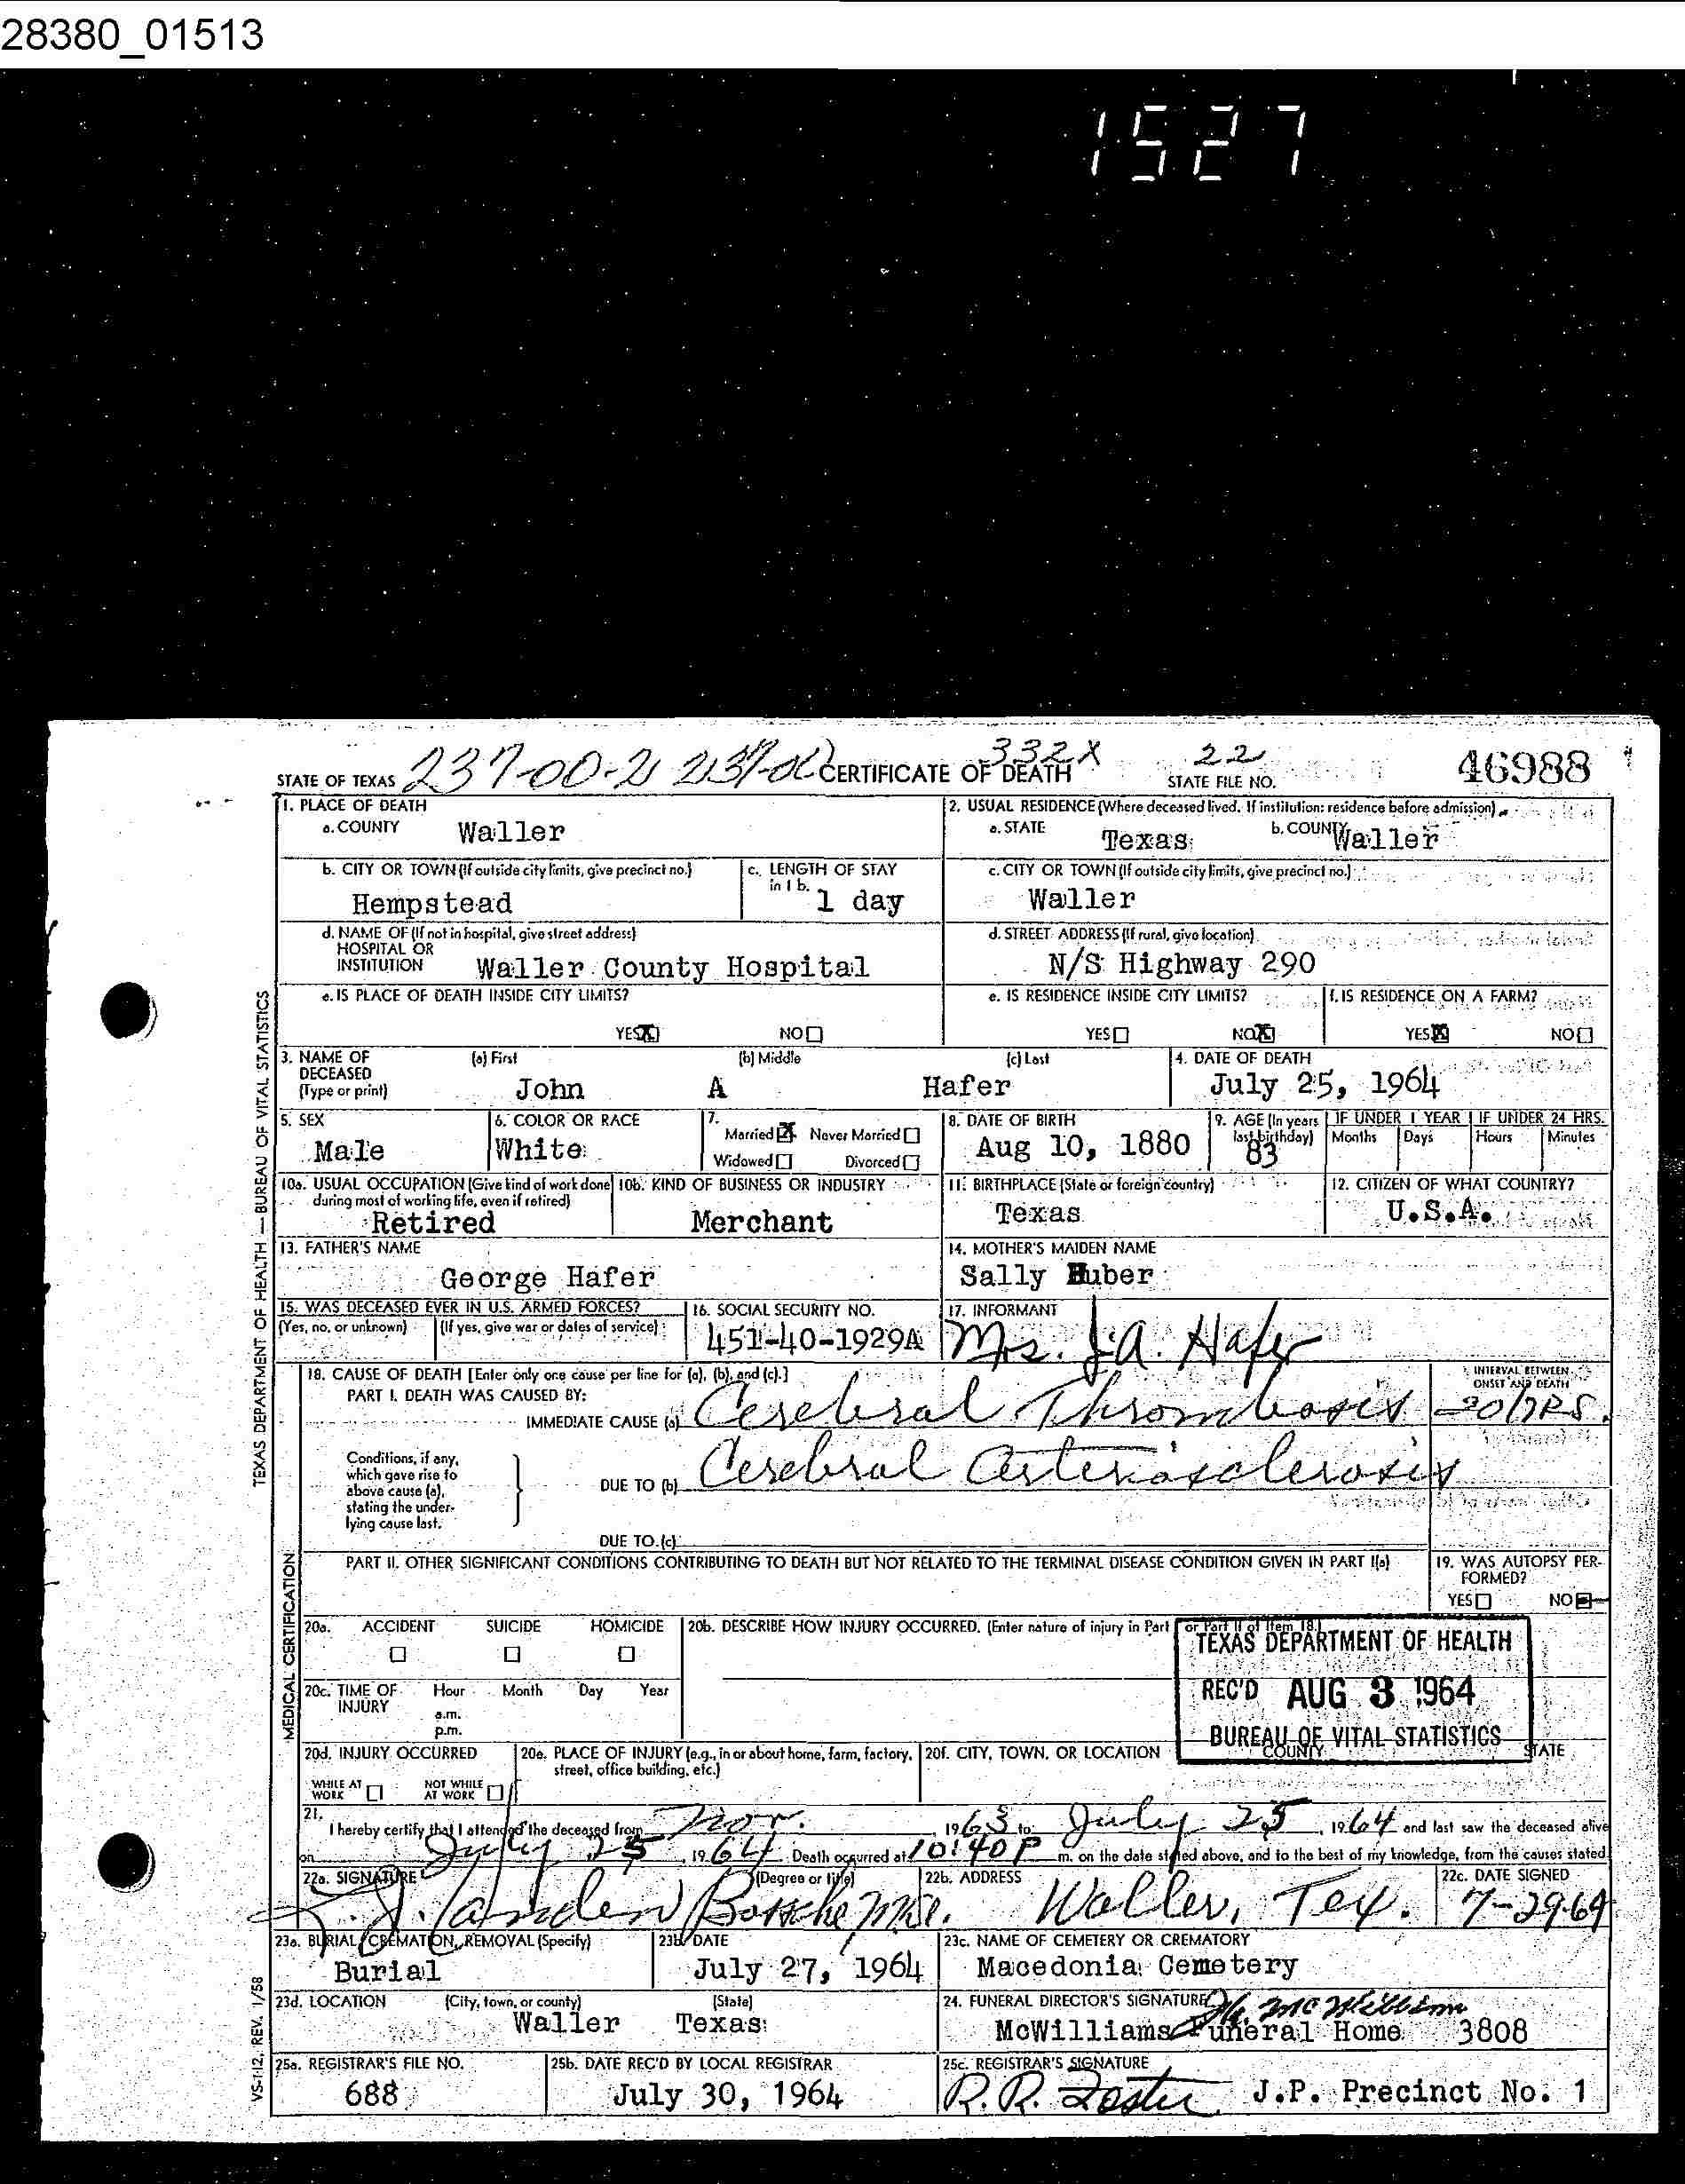 28380_01513
1527
237-00-2 332X 22
STATE OF TEXAS CERTIFICATE OF DEATH STATE FILE NO. 46988
1. PLACE OF DEATH 2. USUAL RESIDENCE (Where deceased lived. If institution: residence before admission)
a. COUNTY Waller a. STATE Texas b. COUNTY Waller
b. CITY OR TOWN (If outside city limits, give precinct no.) c. LENGTH OF STAY in 1 b. c. CITY OR TOWN (If outside city limits, give precinct no.)
Hempstead 1 day Waller
d. NAME OF (If not in hospital, give street address) HOSPITAL OR INSTITUTION Waller County Hospital d. STREET ADDRESS (If rural, give location) N/S Highway 290
e. IS PLACE OF DEATH INSIDE CITY LIMITS? e. IS RESIDENCE INSIDE CITY LIMITS? f. IS RESIDENCE ON A FARM?
YES X NO YES NO X YES X NO
3. NAME OF DECEASED (Type or print) (a) First (b) Middle (c) Last 4. DATE OF DEATH
John A Hafer July 25, 1964
5. SEX 6. COLOR OR RACE 7. Married X Never Married Widowed Divorced 8. DATE OF BIRTH 9. AGE (In years last birthday) IF UNDER 1 YEAR Months Days IF UNDER 24 HRS. Hours Minutes
Male White Aug 10, 1880 83
10a. USUAL OCCUPATION (Give kind of work done during most of working life, even if retired) 10b. KIND OF BUSINESS OR INDUSTRY 11. BIRTHPLACE (State or foreign country) 12. CITIZEN OF WHAT COUNTRY?
Retired Merchant Texas U.S.A.
13. FATHER'S NAME 14. MOTHER'S MAIDEN NAME
George Hafer Sally Huber
15. WAS DECEASED EVER IN U.S. ARMED FORCES? 16. SOCIAL SECURITY NO. 17. INFORMANT
(Yes, no, or unknown) (If yes, give war or dates of service) 451-40-1929A Mrs. J.A. Hafer
18. CAUSE OF DEATH [Enter only one cause per line for (a), (b), and (c).] INTERVAL BETWEEN ONSET AND DEATH
PART I. DEATH WAS CAUSED BY:
IMMEDIATE CAUSE (a) Cerebral Thrombosis
Conditions, if any, which gave rise to above cause (a), stating the underlying cause last.
DUE TO (b) Cerebral Arteriosclerosis
DUE TO (c)
PART II. OTHER SIGNIFICANT CONDITIONS CONTRIBUTING TO DEATH BUT NOT RELATED TO THE TERMINAL DISEASE CONDITION GIVEN IN PART I(a) 19. WAS AUTOPSY PERFORMED?
YES NO
20a. ACCIDENT SUICIDE HOMICIDE 20b. DESCRIBE HOW INJURY OCCURRED. (Enter nature of injury in Part I or Part II of Item 18.)
TEXAS DEPARTMENT OF HEALTH
REC'D AUG 3 1964
BUREAU OF VITAL STATISTICS
20c. TIME OF INJURY Hour Month Day Year
a.m.
p.m.
20d. INJURY OCCURRED 20e. PLACE OF INJURY (e.g., in or about home, farm, factory, street, office building, etc.) 20f. CITY, TOWN, OR LOCATION COUNTY STATE
WHILE AT WORK NOT WHILE AT WORK
21. I hereby certify that I attended the deceased from Nov. 1963 to July 25, 1964 and last saw the deceased alive
on July 25, 1964. Death occurred at 10:40 P m. on the date stated above, and to the best of my knowledge, from the causes stated.
22a. SIGNATURE (Degree or title) 22b. ADDRESS 22c. DATE SIGNED
Waller, Tex. 7-29-64
23a. BURIAL, CREMATION, REMOVAL (Specify) 23b. DATE 23c. NAME OF CEMETERY OR CREMATORY
Burial July 27, 1964 Macedonia Cemetery
23d. LOCATION (City, town, or county) (State) 24. FUNERAL DIRECTOR'S SIGNATURE McWilliams
Waller Texas McWilliams Funeral Home 3808
25a. REGISTRAR'S FILE NO. 25b. DATE REC'D BY LOCAL REGISTRAR 25c. REGISTRAR'S SIGNATURE
688 July 30, 1964 R.R. Foster J.P. Precinct No. 1
TEXAS DEPARTMENT OF HEALTH — BUREAU OF VITAL STATISTICS
MEDICAL CERTIFICATION
VS-112, REV. 1/58